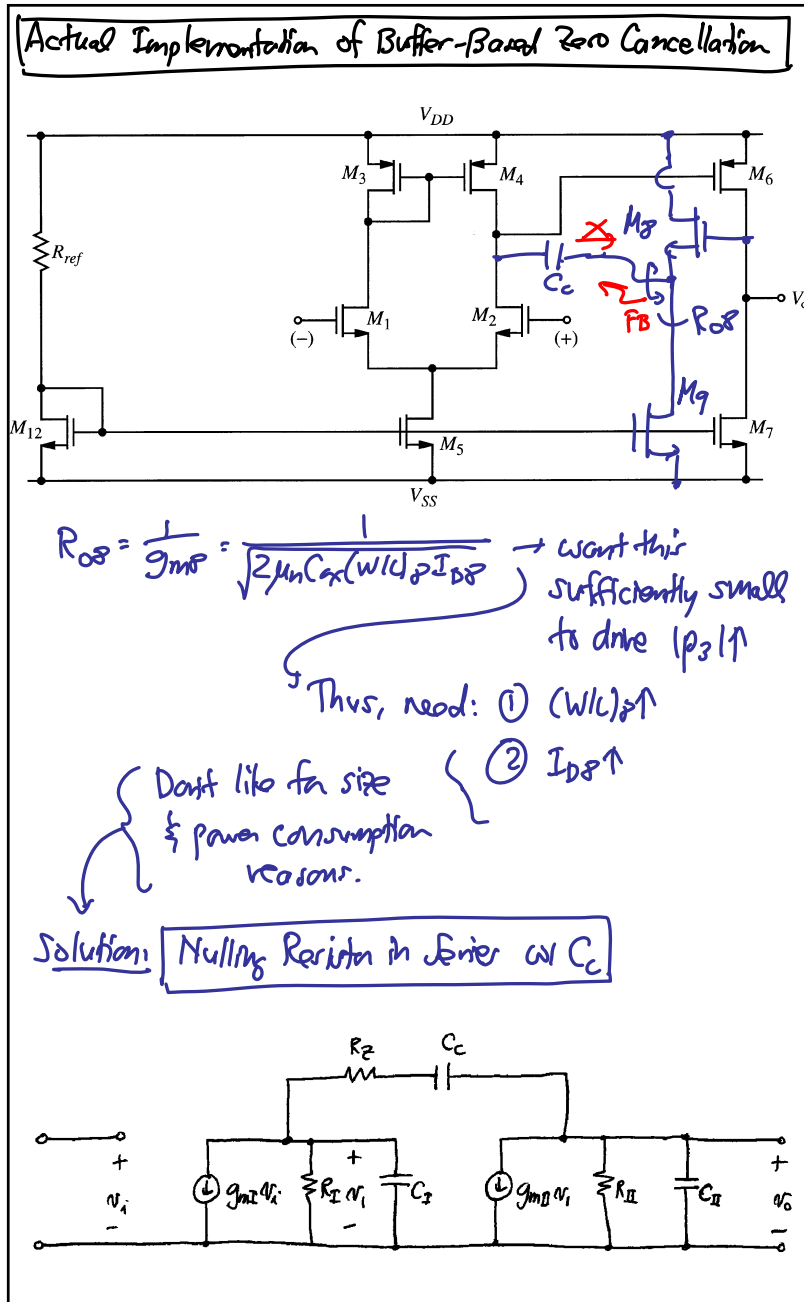 Actual Implementation of Buffer-Based Zero Cancellation
V_DD
M_3
M_4
M_6
M_8
R_ref
X
C_c
FB
R_08
V_o
M_1
M_2
(-)
(+)
M_9
M_12
M_5
M_7
V_SS
R_08 = 1/g_m8 = 1/√(2μ_n C_ox (W/L)_8 I_D8) → want this
sufficiently small
to drive |p_3|↑
Thus, need: ① (W/L)_8↑
② I_D8↑
Don't like for size
& power consumption
reasons.
Solution: Nulling Resistor in Series w/ C_c
R_z
C_c
+
v_i
-
g_mI v_i
R_I
+
v_1
-
C_I
g_mII v_1
R_II
C_II
+
v_o
-